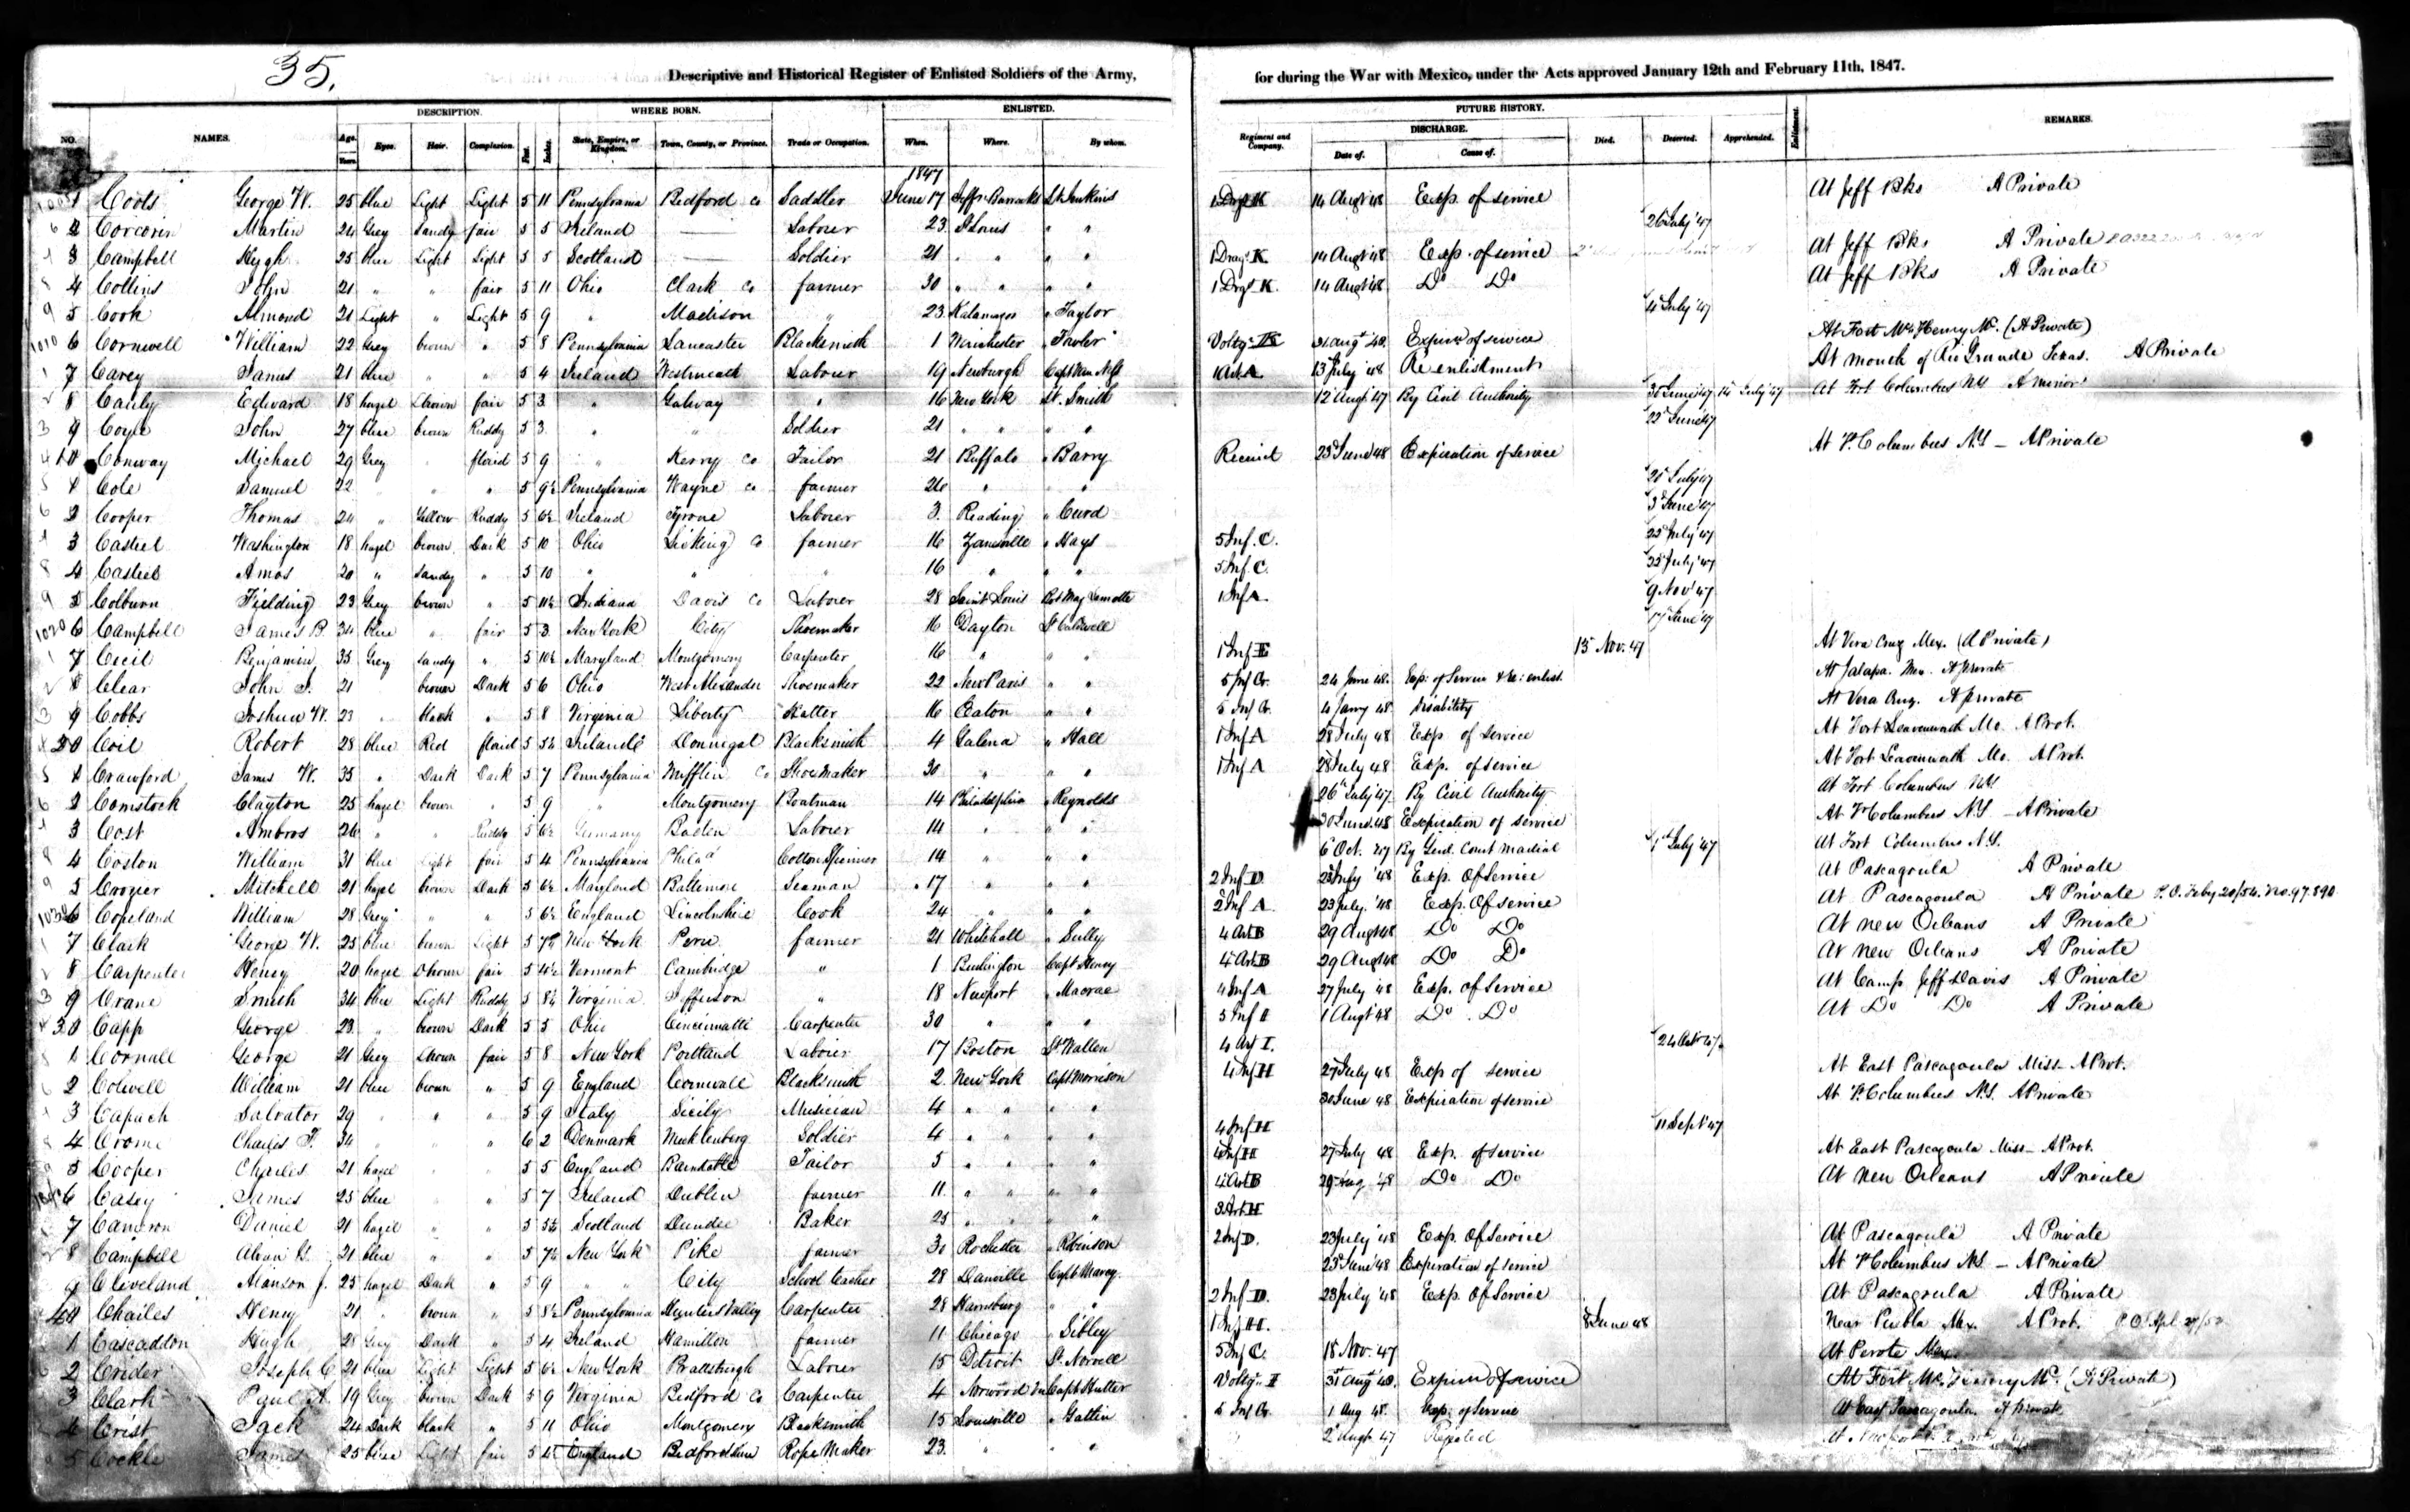 35.
Descriptive and Historical Register of Enlisted Soldiers of the Army, for during the War with Mexico, under the Acts approved January 12th and February 11th, 1847.
DESCRIPTION. WHERE BORN. ENLISTED. FUTURE HISTORY.
NO. NAMES. Age. Eyes. Hair. Complexion. Feet. Inches. State, Empire, or Kingdom. Town, County, or Province. Trade or Occupation. When. Where. By whom. Regiment and Company. DISCHARGE. Died. Deserted. Apprehended. Enlistment. REMARKS.
Years. Date of. Cause of.
1847
1 Coots George W. 25 blue Light Light 5 11 Pennsylvania Bedford Co Saddler June 17 Jeffn Barracks Lt Jenkins 1 Drgs K 14 Augt 48 Exp. of service At Jeff Bks A Private
2 Corcorin Martin 24 Grey Sandy fair 5 5 Ireland Laborer 23 St Louis " " 26 July 47
3 Campbell Hugh 25 blue Light Light 5 5 Scotland Soldier 21 " " " " 1 Drags K 14 Augt 48 Exp. of service At Jeff Bks A Private
4 Collins John 21 " " fair 5 11 Ohio Clark Co farmer 30 " " " " 1 Drgs K. 14 Augt 48 Do Do At Jeff Bks A Private
5 Cook Almond 21 Light " Light 5 9 " Madison " 23 Kalamazoo " Taylor 4 July 47
1010 6 Cornwell William 22 Grey brown " 5 8 Pennsylvania Lancaster Blacksmith 1 Winchester " Fowler Voltgs 31 Augt 48 Expirn of service At Fort McHenry Md. (A Private)
7 Carey James 21 blue " " 5 4 Ireland Westmeath Labour 19 Newburgh 1 Art A 13 July 48 Re enlistment At mouth of Rio Grande Texas. A Private
8 Cauly Edward 18 hazel Brown fair 5 3 " Galway " 16 New York Lt. Smith 12 Augt 47 By Civil Authority 30 June 47 14 July 47 At Fort Columbus NY A minor
9 Coyle John 27 blue brown Ruddy 5 3 " " Soldier 21 " " " " 22 June 47
10 Conway Michael 29 Grey " florid 5 9 " Kerry Co Tailor 21 Buffalo " Barry Recruit 23 June 48 Expiration of service At Ft Columbus N.Y. - A Private
1 Cole Samuel 22 " " " 5 9½ Pennsylvania Wayne Co farmer 26 " " " 25 July 47
2 Cooper Thomas 24 " Yellow Ruddy 5 6½ Ireland Tyrone Laborer 3 Reading " Curd 3 June 47
3 Casteel Washington 18 hazel brown Dark 5 10 Ohio Licking Co farmer 16 Zanesville " Hays 5 Inf. C. 22 July 47
4 Casteel Amos 20 " Sandy " 5 10 " " " 16 " " " 5 Inf C. 22 July 47
5 Colburn Fielding 23 Grey brown " 5 11½ Indiana Davis Co Laborer 28 Saint Louis Bvt Maj Lamotte 1 Inf A. 9 Nov 47
1020 6 Campbell James B. 34 blue " fair 5 3 New York City Shoemaker 16 Dayton Lt Caldwell 17 June 47
7 Cecil Benjamin 35 Grey Sandy " 5 10½ Maryland Montgomery Carpenter 16 " " " 1 Inf E 15 Nov. 47 At Vera Cruz Mex. (A Private)
8 Clear John S. 21 " brown Dark 5 6 Ohio West Alexander Shoemaker 22 New Paris " " 5 Inf G. 24 June 48. Exp: of Service & Re: enlist. At Jalapa. Mex. A private
9 Cobbs Joshua W. 23 " black " 5 8 Virginia Liberty Hatter 16 Eaton " " 5 Inf G. 4 Jany 48 Disability At Vera Cruz. A private
20 Coil Robert 28 blue Red florid 5 5½ Ireland Donnegal Blacksmith 4 Galena " Hall 1 Inf A 28 July 48 Exp. of Service At Fort Leavenworth Mo. A Prvt.
1 Crawford James W. 35 " Dark Dark 5 7 Pennsylvania Mifflin Co Shoemaker 30 " " " 1 Inf A 28 July 48 Exp. of service At Fort Leavenworth Mo. A Prvt.
2 Comstock Clayton 25 hazel brown " 5 9 " Montgomery Boatman 14 Philadelphia " Reynolds 26th July 47 By Civil Authority At Fort Columbus N.Y.
3 Cost Ambros 26 " " Ruddy 5 6½ Germany Baden Laborer 14 " " " 30 June 48 Expiration of service At Ft Columbus N.Y. - A Private
4 Coston William 31 blue Light fair 5 4 Pennsylvania Philada Cotton Spinner 14 " " " 6 Oct. 47 By Genl. Court Martial 1st July 47 At Fort Columbus N.Y.
5 Crozier Mitchell 21 hazel brown Dark 5 6½ Maryland Baltimore Seaman 17 " " " 2 Inf D 23 July '48 Exp. Of Service At Pascagoula A Private
1030 6 Copeland William 28 Grey " " 5 6½ England Lincolnshire Cook 24 " " " 2 Inf A 23 July. '48 Exp. Of service At Pascagoula A Private P.O. Feby 20/54. No. 97.890
7 Clark George W. 25 blue brown Light 5 7½ New York Peru farmer 21 Whitehall " Sully 4 Art B 29 Augt 48 Do Do At New Orleans A Private
8 Carpenter Henry 20 hazel Brown fair 5 4½ Vermont Cambridge " 1 Burlington Capt Henry 4 Art B 29 Augt 48 Do Do At New Orleans A Private
9 Crane Smith 34 blue Light Ruddy 5 8½ Virginia Jefferson " 18 Newport " Macrae 4 Inf A 27 July 48 Exp. of Service At Camp Jeff Davis A Private
30 Capp George 23 " brown Dark 5 5 Ohio Cincinnatti Carpenter 30 " " " 5 Inf 1 Augt 48 Do Do At Do Do A Private
1 Cornall George 21 Grey Brown fair 5 8 New York Portland Laborer 17 Boston Lt Wallen 4 Art I. 24 Octr 47
2 Colwell William 21 blue brown " 5 9 England Cornwall Blacksmith 2 New York Capt Morrison 4 Inf H 27 July 48 Exp of service At East Pascagoula Miss. A Prvt.
3 Capach Salvator 29 " " " 5 9 Italy Sicily Musician 4 " " " 30 June 48 Expiration of service At Ft Columbus N.Y. A Private
4 Crome Charles F. 34 " " " 6 2 Denmark Mecklenberg Soldier 4 " " " 4 Inf H 11 Sept 47
5 Cooper Charles 21 hazel " " 5 5 England Barnstable Tailor 5 " " " 4 Inf H 27 July 48 Exp. of service At East Pascagoula Miss. A Prvt.
6 Casey James 25 blue " " 5 7 Ireland Dublin farmer 11 " " " " 4 Art B 29 Aug '48 Do Do At New Orleans A Private
7 Cameron Daniel 21 hazel " " 5 5½ Scotland Dundee Baker 25 " " " 3 Art H
8 Campbell 21 blue " " 5 7½ New York Pike farmer 30 Rochester " Robinson 2 Inf D. 23 July '48 Exp. Of Service At Pascagoula A Private
9 Cleveland Alanson J. 25 hazel Dark " 5 9 " " City School teacher 28 Danville Capt Marcy. 23 June 48 Expiration of service At Ft Columbus N.Y. - A Private
40 Chailes Henry 21 " brown " 5 8½ Pennsylvania Hunters Valley Carpenter 28 Harrisburg " " 2 Inf D. 23 July '48 Exp. Of Service At Pascagoula A Private
1 Cascaddon Hugh 28 Grey Dark " 5 4 Ireland Hamilton farmer 11 Chicago " Sibley 1 Inf H. 8 June 48 Near Puebla Mex. A Prvt.
2 Crider Joseph C 21 blue Light Light 5 6½ New York Prattsburgh Laborer 15 Detroit Lt. Norvell 5 Inf C. 18 Nov. 47 At Perote Mex.
3 Clark Paul A. 19 Grey brown Dark 5 9 Virginia Bedford Co Carpenter 4 Norwood Capt Hutter Voltgs I 31 Augt 48. Expirn of service At Fort McHenry Md. (A Private)
4 Crist Jack 24 Dark black " 5 11 Ohio Montgomery Blacksmith 15 Louisville " Gatlin 1 Aug 48. Exp: of Service At East Pascagoula. A private
5 Cockle James 25 blue Light fair 5 England Bedfordshire Rope Maker 23 " " " 2 Augt 47 Rejected